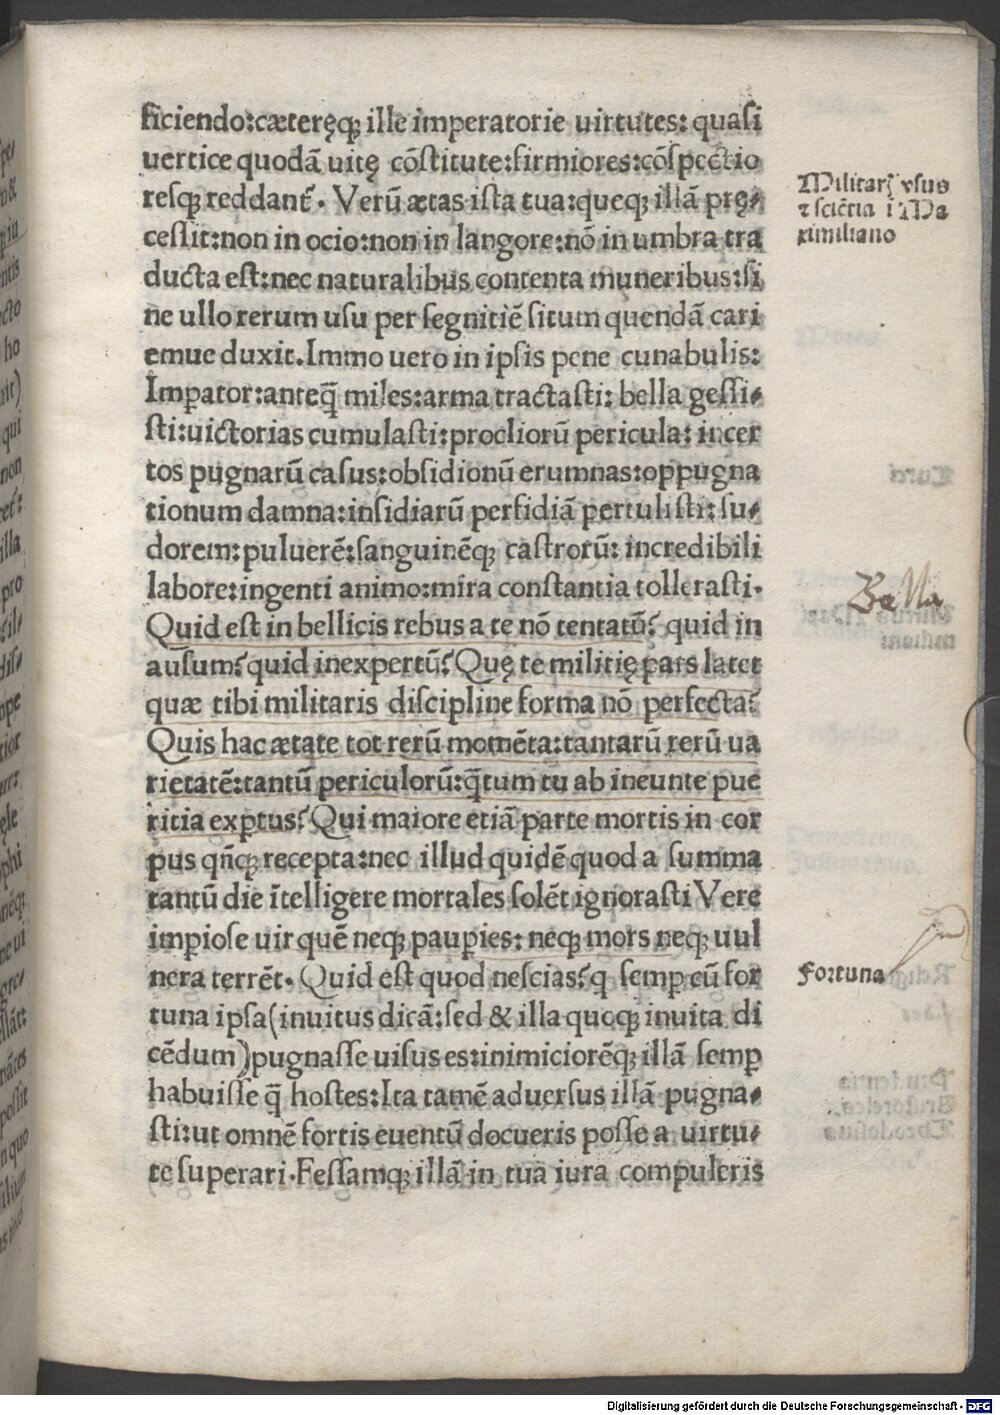 ficiendo:cætereq̨ ille imperatorie uirtutes: quasi
uertice quodā uitę cōstitute:firmiores:cōspectio
resq̨ reddant᷑. Verū ætas ista tua:queq̨ illā prę-
Militarꝭ vsus
⁊ sciētia ī Ma
ximiliano
cessit:non in ocio:non in langore:nō in umbra tra
ducta est:nec naturalibus contenta muneribus:si
ne ullo rerum usu per segnitiē situm quendā cari
emue duxit. Immo uero in ipsis pene cunabulis:
Impator:anteq̄ miles:arma tractasti: bella gessi-
sti:uictorias cumulasti:procliorū pericula: incer
tos pugnarū casus:obsidionū erumnas:oppugna
tionum damna:insidiarū perfidiā pertulisti: su-
dorem:puluerē:sanguinēq̨ castrorū: incredibili
labore:ingenti animo:mira constantia tollerasti.
Bella
Quid est in bellicis rebus a te nō tentatū? quid in
ausum? quid inexpertū? Quę te militię pars latet
quæ tibi militaris discipline forma nō perfecta?
Quis hac ætate tot rerū momēta:tantarū rerū ua
rietatē:tantū periculorū:q̄tum tu ab ineunte pue
ritia exꝑtus? Qui maiore etiā parte mortis in cor
pus qn̄cq̨ recepta:nec illud quidē quod a summa
tantū die ītelligere mortales solēt ignorasti Vere
imꝑiose uir quē neq̨ pauꝑies: neq̨ mors neq̨ uul
nera terrēt. Quid est quod nescias? q semꝑ cū for
Fortuna
tuna ipsa(inuitus dicā:sed & illa quoq̨ inuita di
cēdum)pugnasse uisus es:inimiciorēq̨ illā semꝑ
habuisse q̄ hostes:Ita tamē aduersus illā pugna-
sti:ut omnē fortis euentū docueris posse a uirtu-
te superari. Fessamq̨ illā in tua iura compuleris
Digitalisierung gefördert durch die Deutsche Forschungsgemeinschaft - DFG